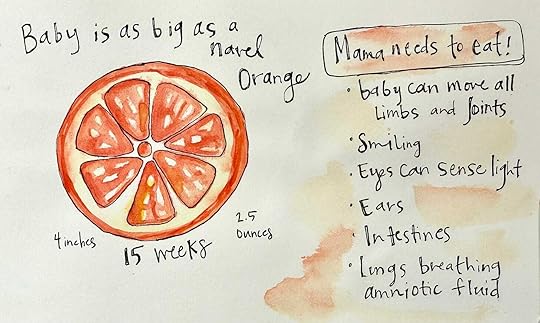 Baby is as big as a
navel
Orange
4 inches
15 weeks
2.5
ounces
Mama needs to eat!
· baby can move all
Limbs and Joints
· Smiling
· Eyes can sense light
· Ears
· Intestines
· Lungs breathing
amniotic fluid